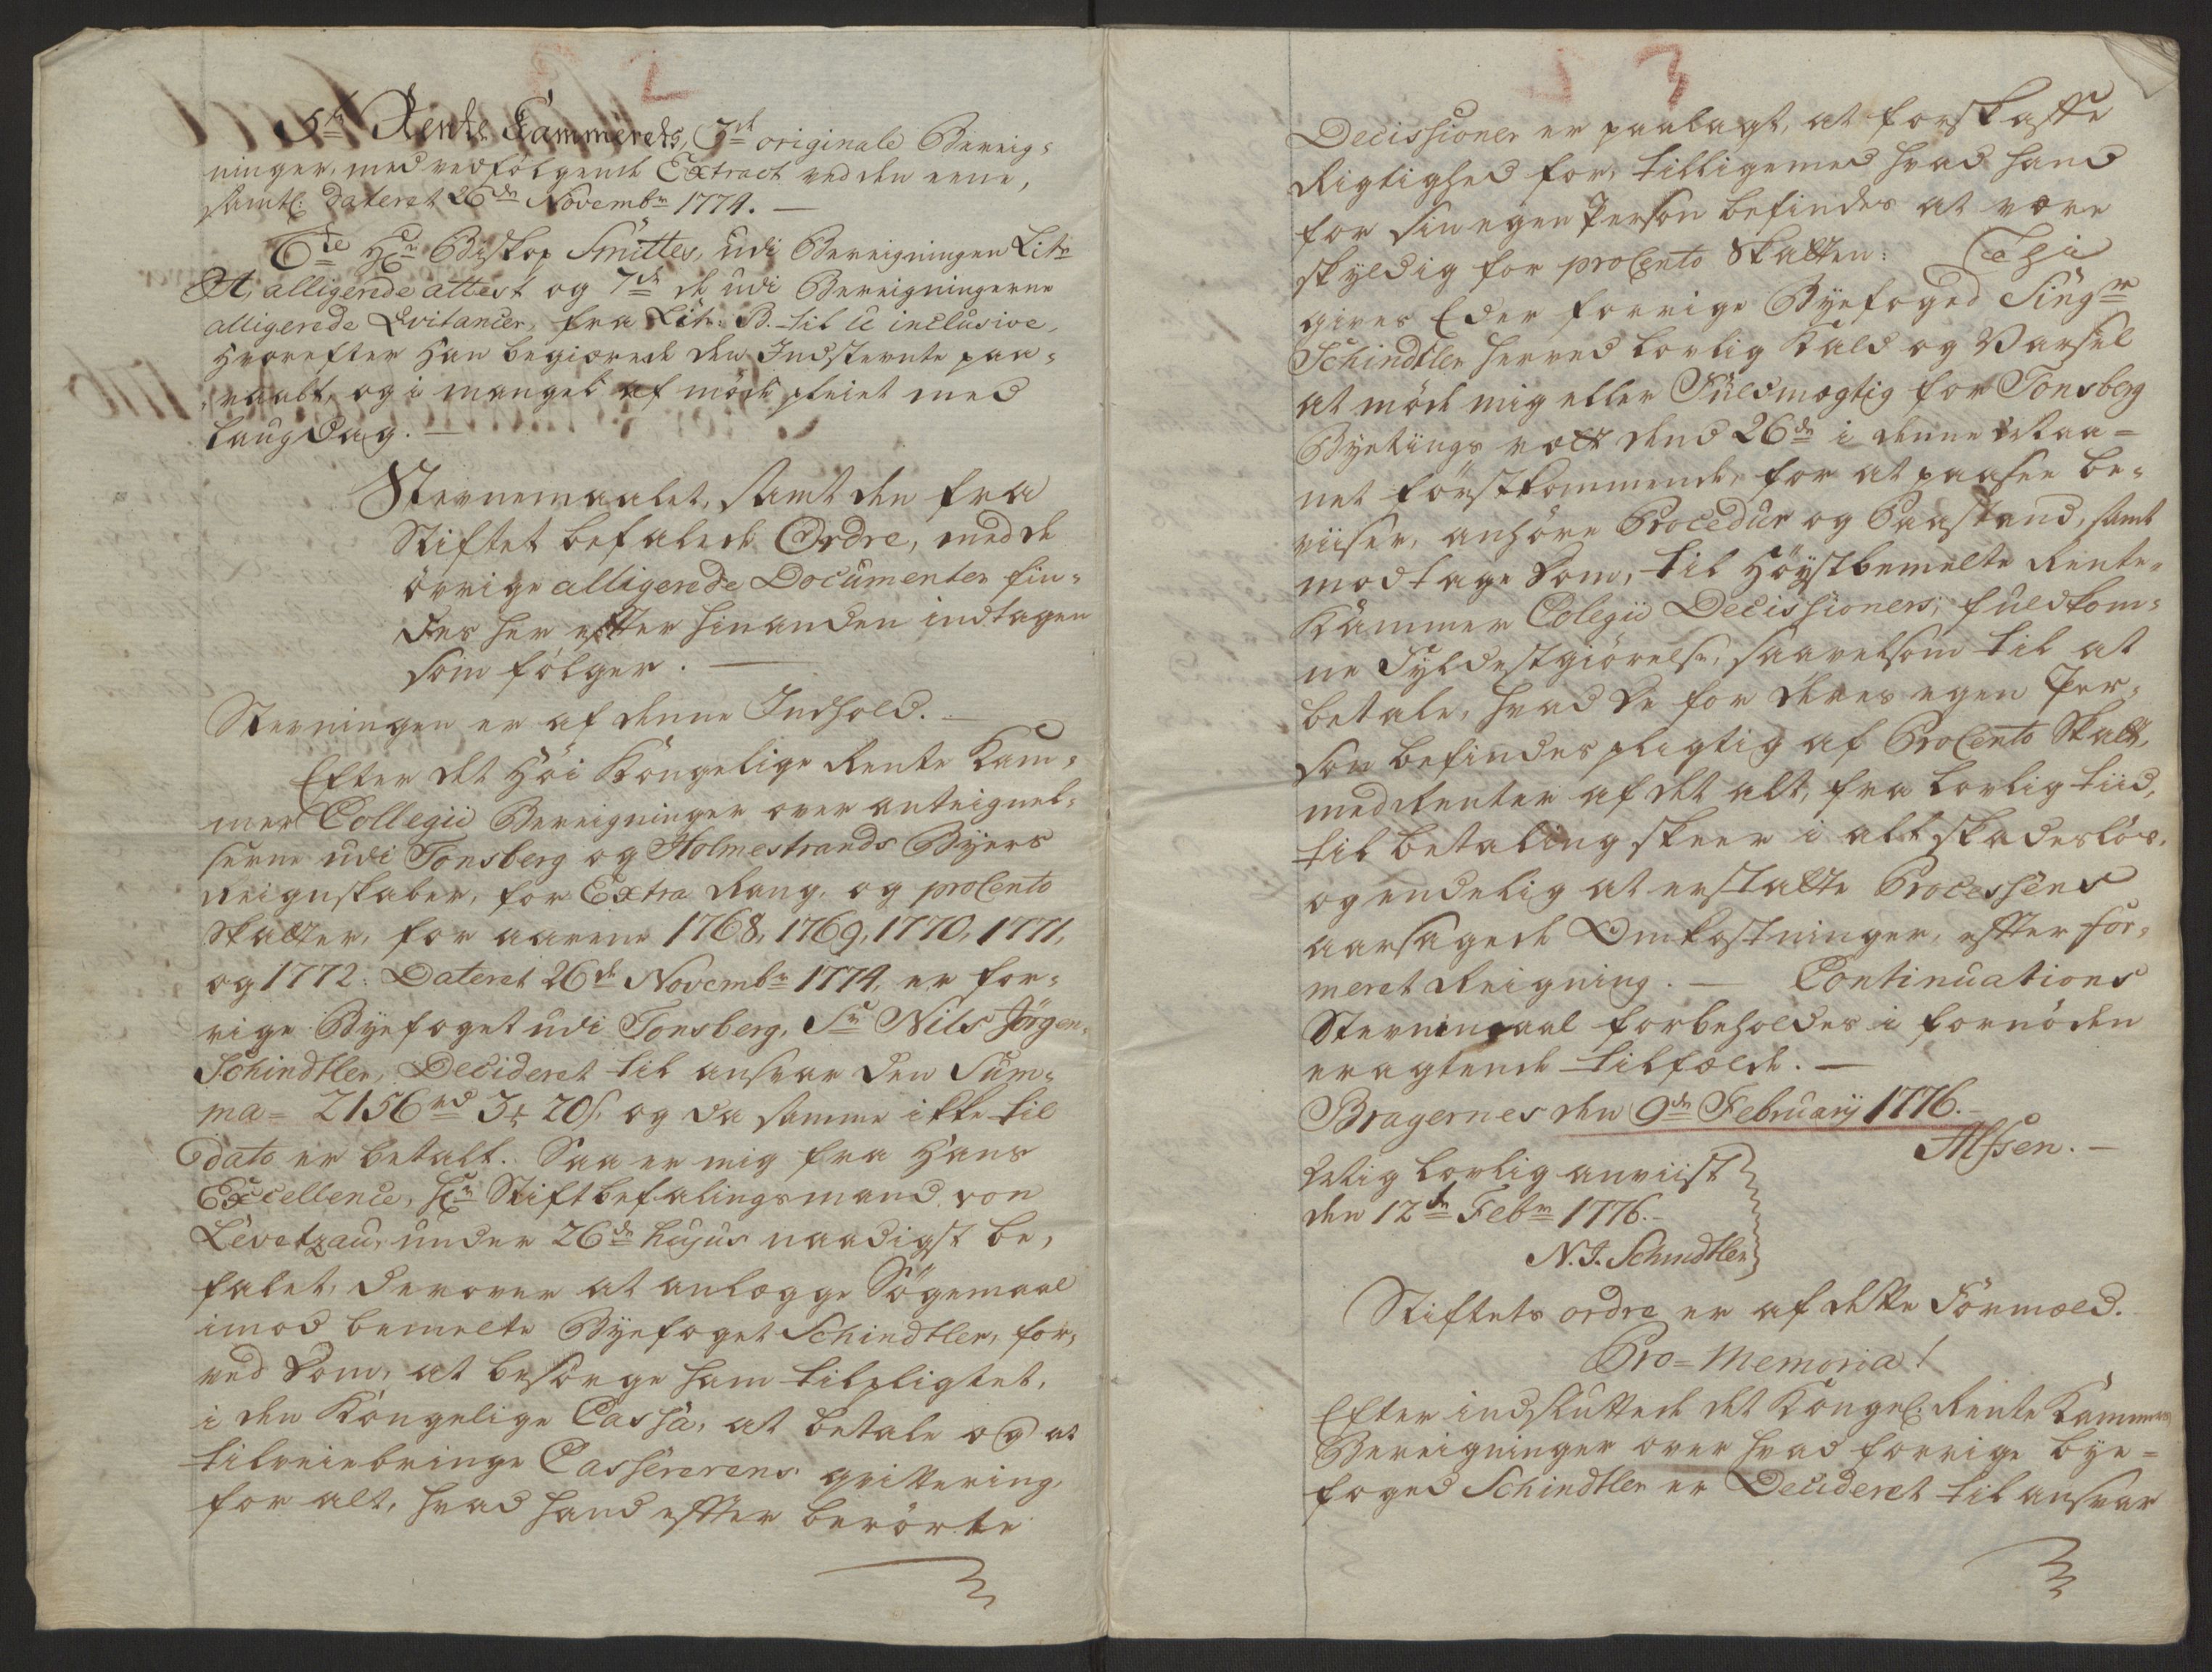 2
5te Rente Kammerets, 3de originale Bereig-
ninger, med vedfölgende Extract ved den eene,
samtl: dateret 26de Novembr 1774. —
6te Hr Biskop Smittes, udi Bereigningen Litr
A, alligerede attest og 7de de udi Bereigningerne
alligerede Qvitancer, fra Litr: B. til U inclusive,
hvorefter han begiærede den Indstevnte paa-
raabt, og i mangel af möde pleiet med
Laugdag. —
Stevnemaalet, samt den fra
Stiftet befalede Ordre, med de
övrige alligerede Documenter fin-
des her efter hinanden indtagen
som fölger. —
Stevningen er af denne Indhold. —
Efter det Höi Kongelige Rente Kam-
mer Collegii Bereigninger over anteignel-
serne udi Tonsberg og Holmestrands Byers
Reignskaber, for Extra Rang, og proCento
Skatter, for aarene 1768, 1769, 1770, 1771,
og 1772. Dateret 26de Novembr 1774, er for-
rige Byefoget udi Tonsberg, Sr Nils Jörgen
Schindtler, Decideret til ansvar den Sum-
ma = 2156rd 3 20s. og da samme ikke til
dato er betalt. Saa er mig fra Hans
Excellence, Hr Stiftbefalingsmand von
Levetzau, under 26de hujus naadigst be-
falet, derover at anlægge Sögemaal
imod bemelte Byefoget Schindtler, for-
ved Dom, at besörge ham tilpligtet,
i den Kongelige Cassa, at betale og at
tilveiebringe Cassererens qvittering,
for alt, hvad hand efter berörte
3
Decissioner er paalagt, at forskaffe
Rigtighed for, tilligemed hvad hand
for sin egen Person befindes at være
skyldig for proCento Skatten: Thi
gives Eder forrige Byefoged Singr
Schindtler herved lovlig Kald og Varsel
at möde mig eller Fuldmægtig for Tonsberg
Byetings rætt dend 26de i denne Maa-
net förstkommende, for at paasee be-
viiser, anhöre Procedur og Paastand, samt
modtage Dom, til Höystbemelte Rente-
Kammer Colegii Decissioners, fuldkom-
ne Fyldestgiörelse, saavelsom til at
betale, hvad De for deres egen Per-
son befindes pligtig af ProCento Skatt,
med Renter af det alt, fra lovlig tiid,
til betaling skeer i alt skadeslös,
og endelig at erstatte Processens
aarsagede Omkostninger, efter for-
meret Reigning. — Continuations
Stevnemaal forbeholdes i fornöden
eragtende tilfælde. —
Bragernes den 9de February 1776. —
Alssen. —
Mig lovlig anviist
den 12te Febr 1776. —
N. J. Schindtler
Stiftets ordre er af dette Formæld.
Pro = Memoria!
Efter indsluttede det Kongel: Rente Kammers
Bereigninger over hvad forrige bye-
foged Schindtler er Decideret til ansvar